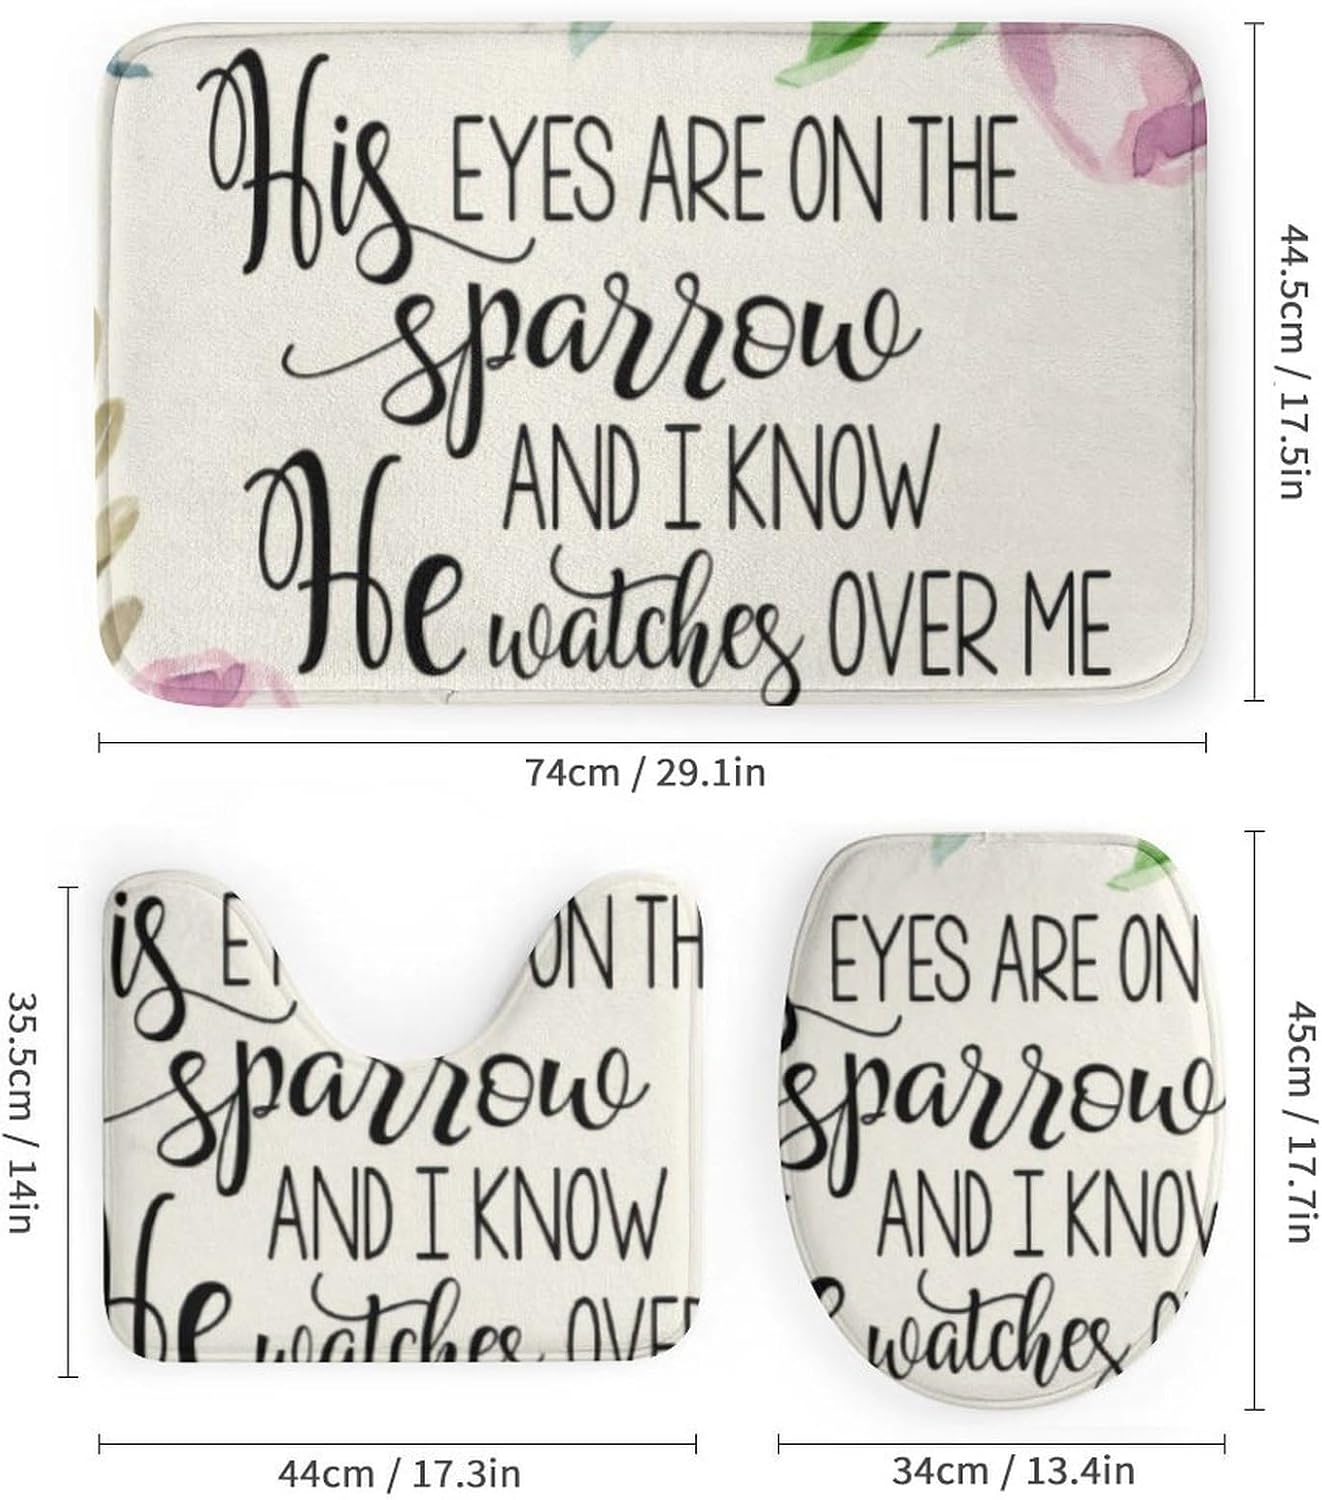 His EYES ARE ON THE
sparrow
AND I KNOW
He watches OVER ME
44.5cm / 17.5in
74cm / 29.1in
is EY ON TH
sparrow
AND I KNOW
He watches OVER
35.5cm / 14in
44cm / 17.3in
EYES ARE ON
sparrow
AND I KNOW
e watches O
45cm / 17.7in
34cm / 13.4in